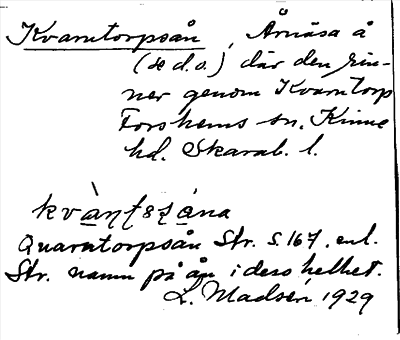 Kvarntorpsån, Årnäsa å
(se d.o.) där den rin-
ner genom Kvarntorp
Forshems sn, Kinne
hd. Skarab. l.
Quarntorpsån Str. S. 167. enl.
Str. namn på ån i dess helhet.
L. Madsén, 1929